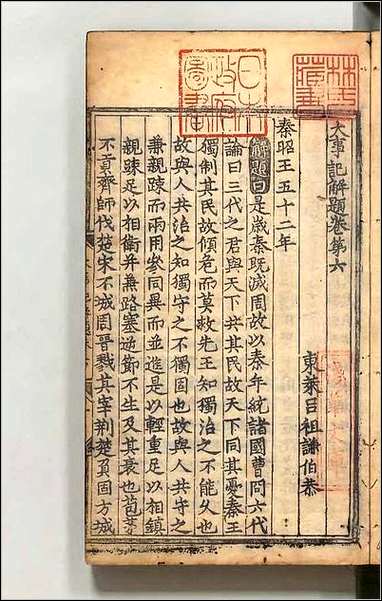 大事記解題卷第六
東萊呂祖謙伯恭
秦昭王五十二年
解題曰是歲秦既滅周故以秦年統諸國曹冏六代
論曰三代之君與天下共其民故天下同其憂秦王
獨制其民故傾危而莫救先王知獨治之不能久也
故與人共治之知獨守之不獨固也故與人共守之
兼親踈而兩用參同異而並進是以輕重足以相鎮
親踈足以相衛并兼路塞逆節不生及其衰也苞茅
不貢齊師伐楚宋不城周晉戮其宰荆楚負固方城
日本
政府
圖書
林氏
藏書